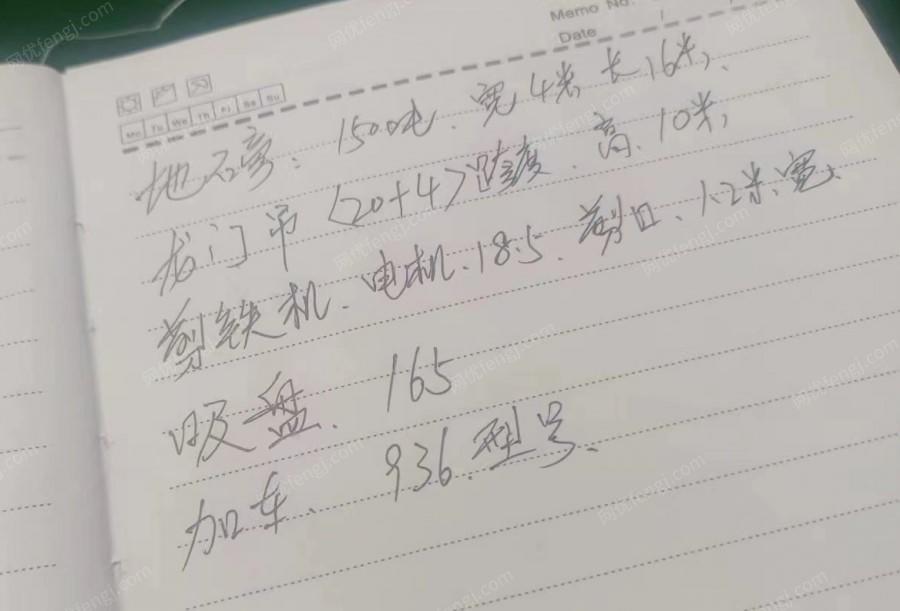 Memo No.
Date / /
Mo Tu We Th Fr Sa Su
地石膏：150吨、宽4米长16米，
龙门吊〈20+4〉跨度、高、10米，
剪铁机、电机、18.5、剪口、1.2米、宽、
吸盘、165
加车、936、型号、